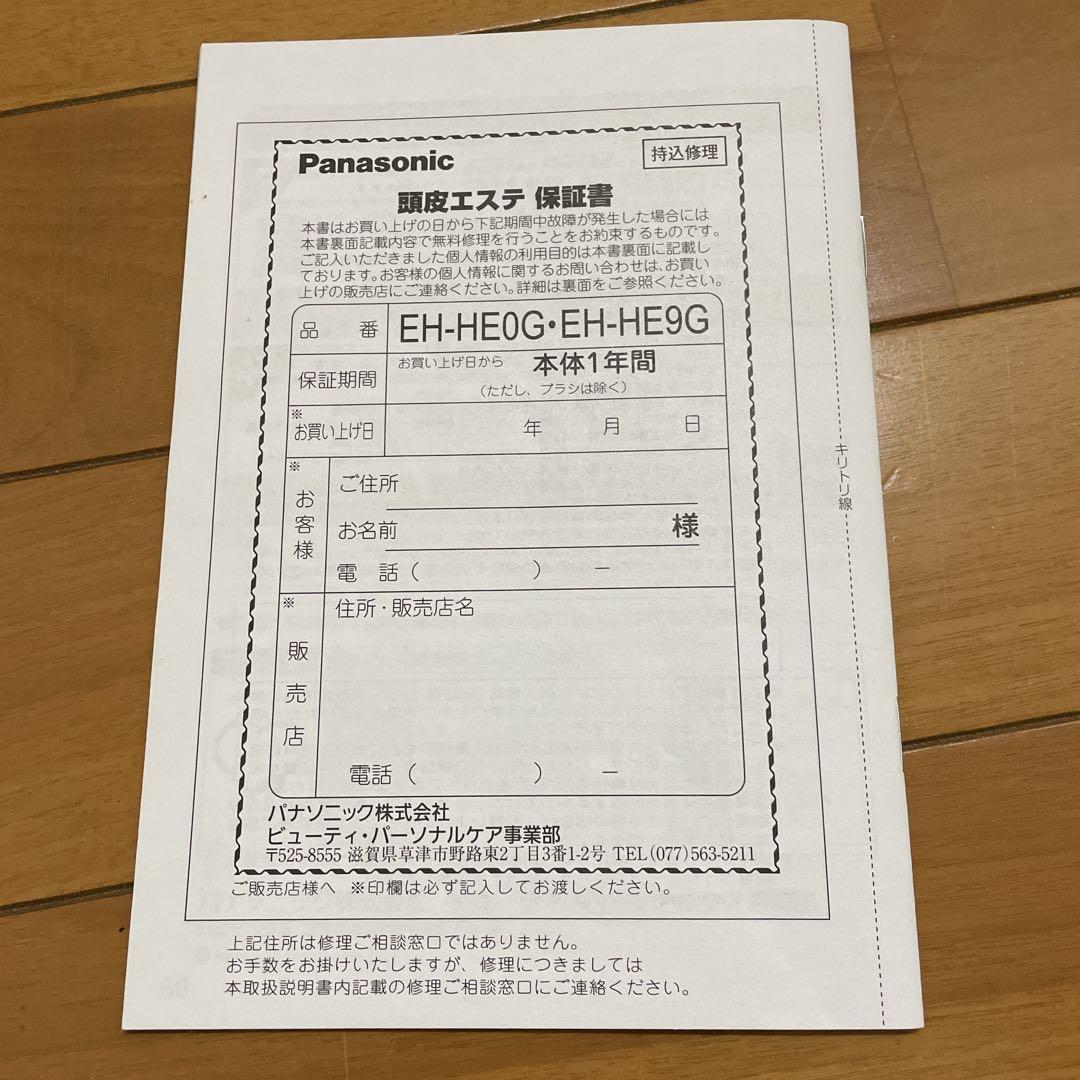 Panasonic
持込修理
頭皮エステ 保証書
本書はお買い上げの日から下記期間中故障が発生した場合には
本書裏面記載内容で無料修理を行うことをお約束するものです。
ご記入いただきました個人情報の利用目的は本書裏面に記載し
ております。お客様の個人情報に関するお問い合わせは、お買い
上げの販売店にご連絡ください。詳細は裏面をご参照ください。
品 番 EH-HE0G・EH-HE9G
保証期間 お買い上げ日から 本体1年間
(ただし、ブラシは除く)
※お買い上げ日 年 月 日
※お客様
ご住所
お名前 様
電 話 ( ) －
※販売店
住所・販売店名
電話 ( ) －
パナソニック株式会社
ビューティ・パーソナルケア事業部
〒525-8555 滋賀県草津市野路東2丁目3番1-2号 TEL(077)563-5211
ご販売店様へ ※印欄は必ず記入してお渡しください。
上記住所は修理ご相談窓口ではありません。
お手数をお掛けいたしますが、修理につきましては
本取扱説明書内記載の修理ご相談窓口にご連絡ください。
キリトリ線